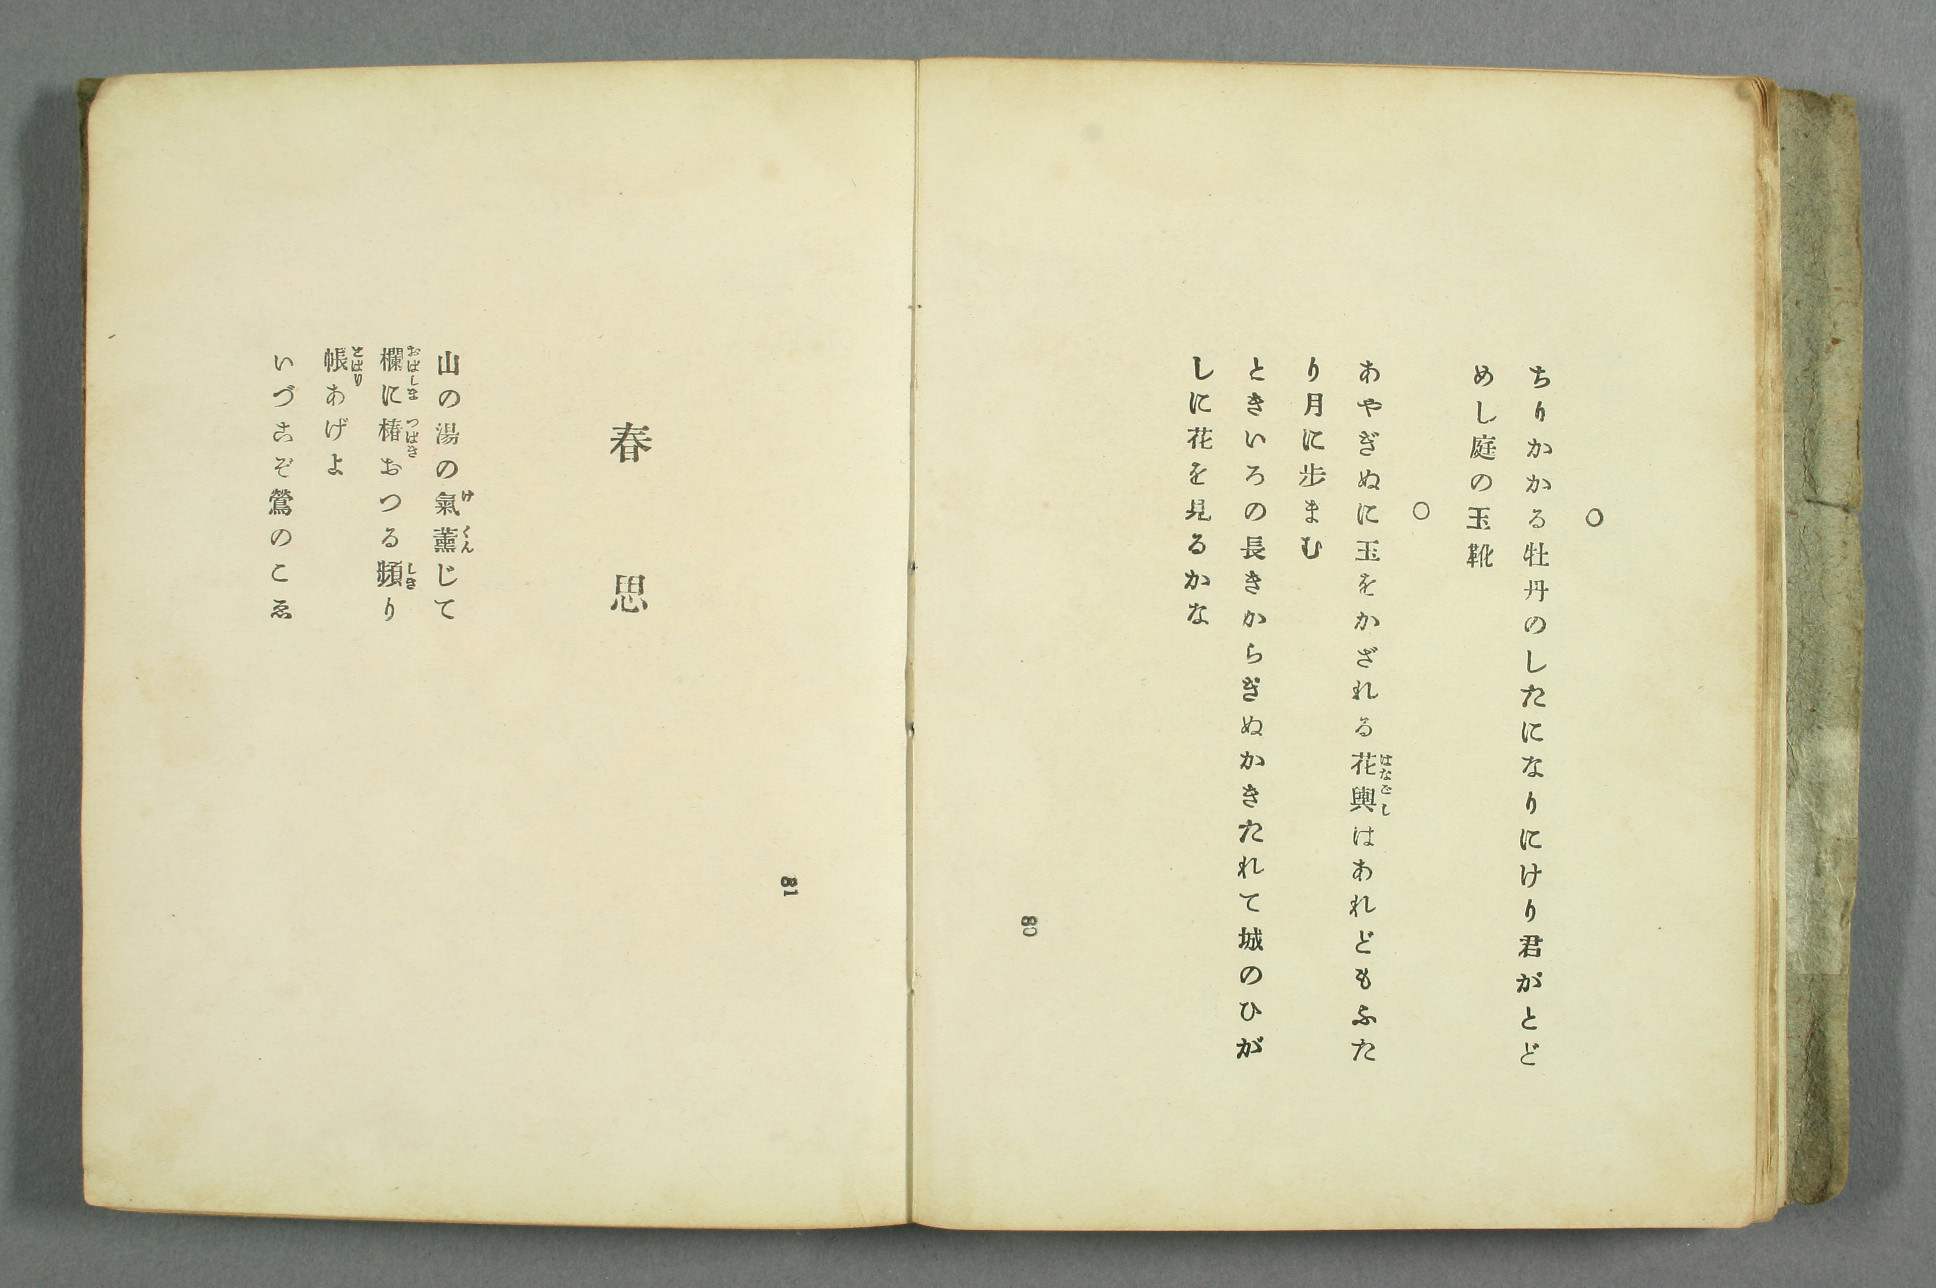 ○
ちりかかる牡丹のしたになりにけり君がとど
めし庭の玉靴
○
あやぎぬに玉をかざれる花輿はあれどもふた
はなごし
り月に歩まむ
ときいろの長きからぎぬかきたれて城のひが
しに花を見るかな
80
81
春思
山の湯の氣薰じて
け くん
欄に椿おつる頻り
おばしま つばき しき
帳あげよ
とばり
いづこぞ鶯のこゑ